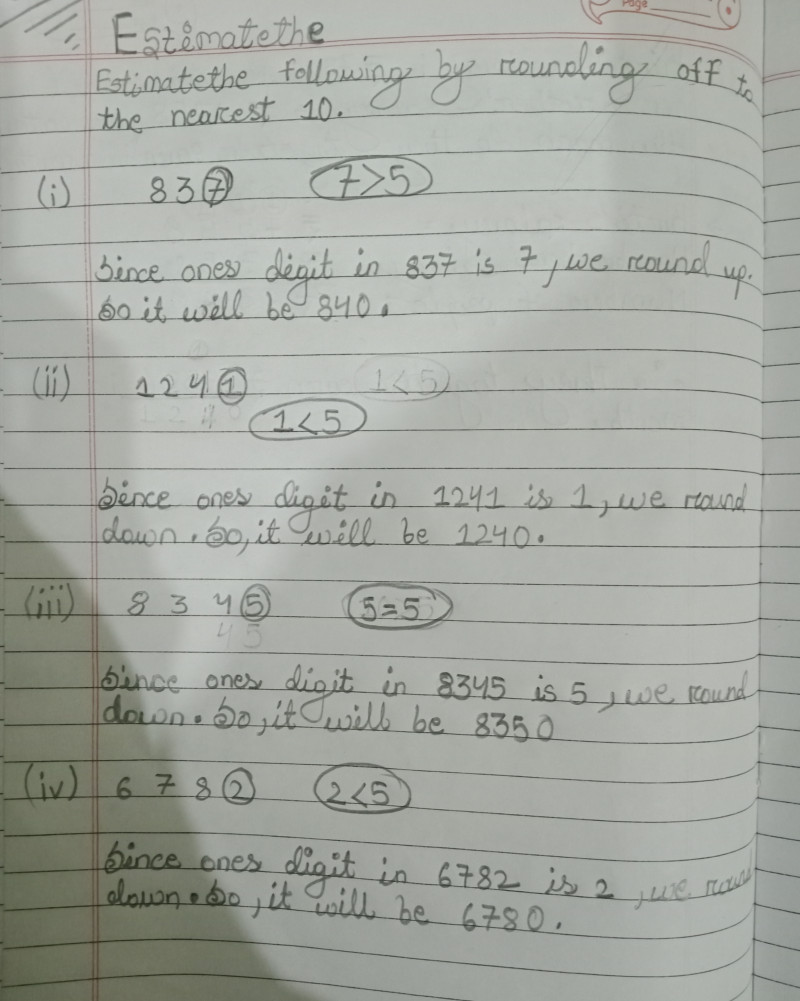 Page
Estimatethe
Estimatethe following by rounding off to
the nearest 10.
(i) 837 7>5
Since ones digit in 837 is 7, we round up.
So it will be 840.
(ii) 1241 1<5
1<5
Since ones digit in 1241 is 1, we round
down. So, it will be 1240.
(iii) 8345 5=5
45
Since ones digit in 8345 is 5, we round
down. So, it will be 8350
(iv) 6782 2<5
Since ones digit in 6782 is 2, we round
down. So, it will be 6780.